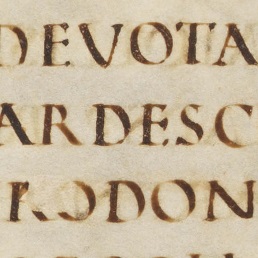 DEVOTA
ARDESC
RODON